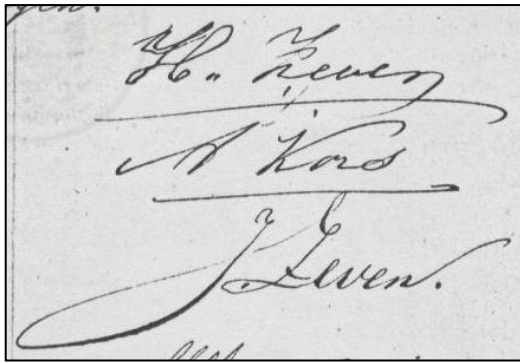 H. Zeven
A Kors
J Zeven.